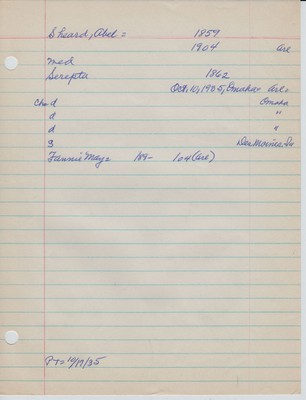 Sheard, Abel = 1859
1904 Arc
med
Serepta 1862
Oct. 10, 1905, Omaha = Arc =
Ch = d Omaha
d "
d "
S Des Moines, Ia
Fannie May = 189- 104 (Arc)
P T = 10/19/35